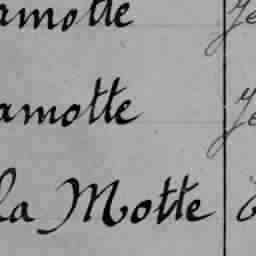 amotte
amotte
la Motte